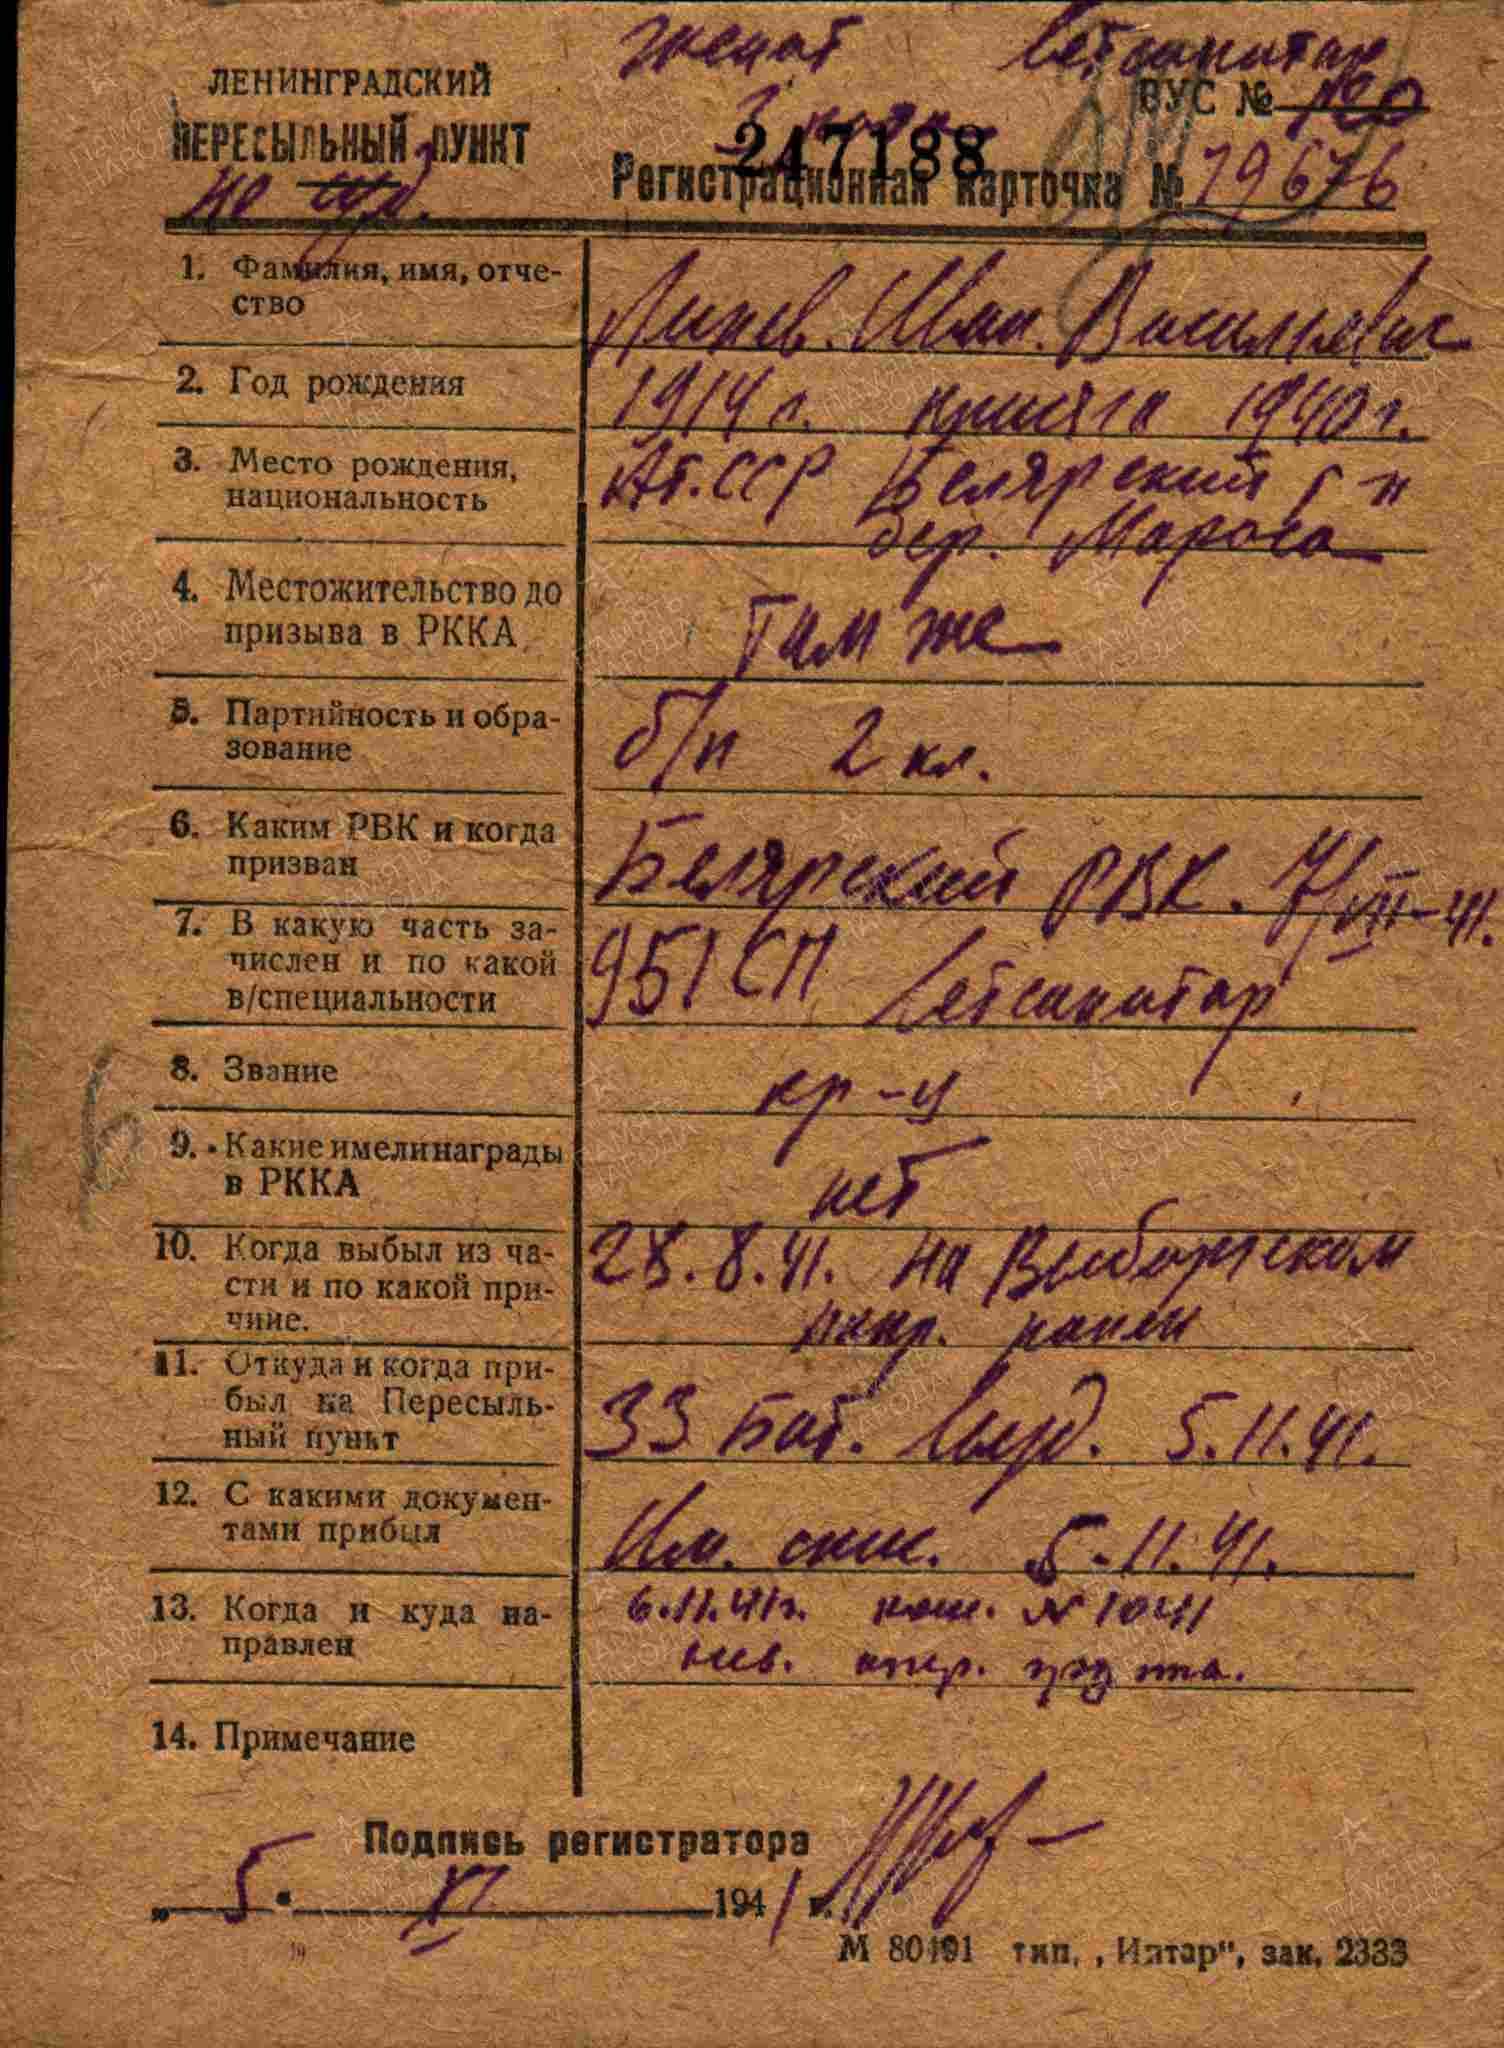 женат Ветсанитар
ЛЕНИНГРАДСКИЙ
ПЕРЕСЫЛЬНЫЙ ПУНКТ
ВУС №
247188
Регистрационная карточка № 79676
1. Фамилия, имя, отче-
ство
Линев. Иван. Васильевич
2. Год рождения
1914 г. присяга 1940 г.
3. Место рождения,
национальность
Ат.ССР Белярский р-н
дер. Мароса
4. Местожительство до
призыва в РККА
Там же
5. Партийность и обра-
зование
б/п 2 кл.
6. Каким РВК и когда
призван
Белярский РВК. 7/VII-41.
7. В какую часть за-
числен и по какой
в/специальности
951 СП Ветсанитар
8. Звание
кр-ц
9. Какие имели награды
в РККА
нет
10. Когда выбыл из ча-
сти и по какой при-
чине.
28.8.41. на Выборгском
напр. ранен
11. Откуда и когда при-
был на Пересыль-
ный пункт
33 Бат. Вызд. 5.11.41.
12. С какими докумен-
тами прибыл
Им. спис. 5.11.41.
13. Когда и куда на-
правлен
6.11.41г. ком. № 1041
нев. опер. группа.
14. Примечание
Подпись регистратора
„ 5 “ XI 1941 г.
М 80491 тип. „Интар", зак. 2333